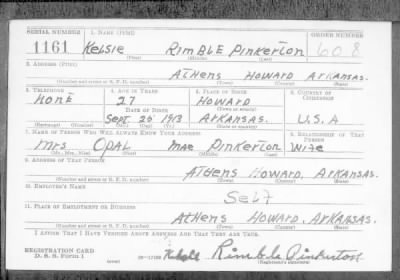 SERIAL NUMBER 1. NAME (Print) ORDER NUMBER
1161 Kelsie Rimble Pinkerton 608
2. ADDRESS (Print)
Athens Howard Arkansas.
(Number and street or R. F. D. number) (Town) (County) (State)
3. TELEPHONE 4. AGE IN YEARS 5. PLACE OF BIRTH 6. COUNTRY OF CITIZENSHIP
none 27 Howard
DATE OF BIRTH (Town or county)
Sept. 26 1913 Arkansas. U.S.A
(Exchange) (Number) (Mo.) (Day) (Yr.) (State or country)
7. NAME OF PERSON WHO WILL ALWAYS KNOW YOUR ADDRESS 8. RELATIONSHIP OF THAT PERSON
Mrs Opal mae Pinkerton Wife
(Mr., Mrs., Miss) (First) (Middle) (Last)
9. ADDRESS OF THAT PERSON
Athens Howard, Arkansas.
(Number and street or R. F. D. number) (Town) (County) (State)
10. EMPLOYER'S NAME
Self
11. PLACE OF EMPLOYMENT OR BUSINESS
Athens Howard, Arkansas.
(Number and street or R. F. D. number) (Town) (County) (State)
I AFFIRM THAT I HAVE VERIFIED ABOVE ANSWERS AND THAT THEY ARE TRUE.
REGISTRATION CARD
D. S. S. Form 1 Rimble Pinkerton
(Registrant's signature)